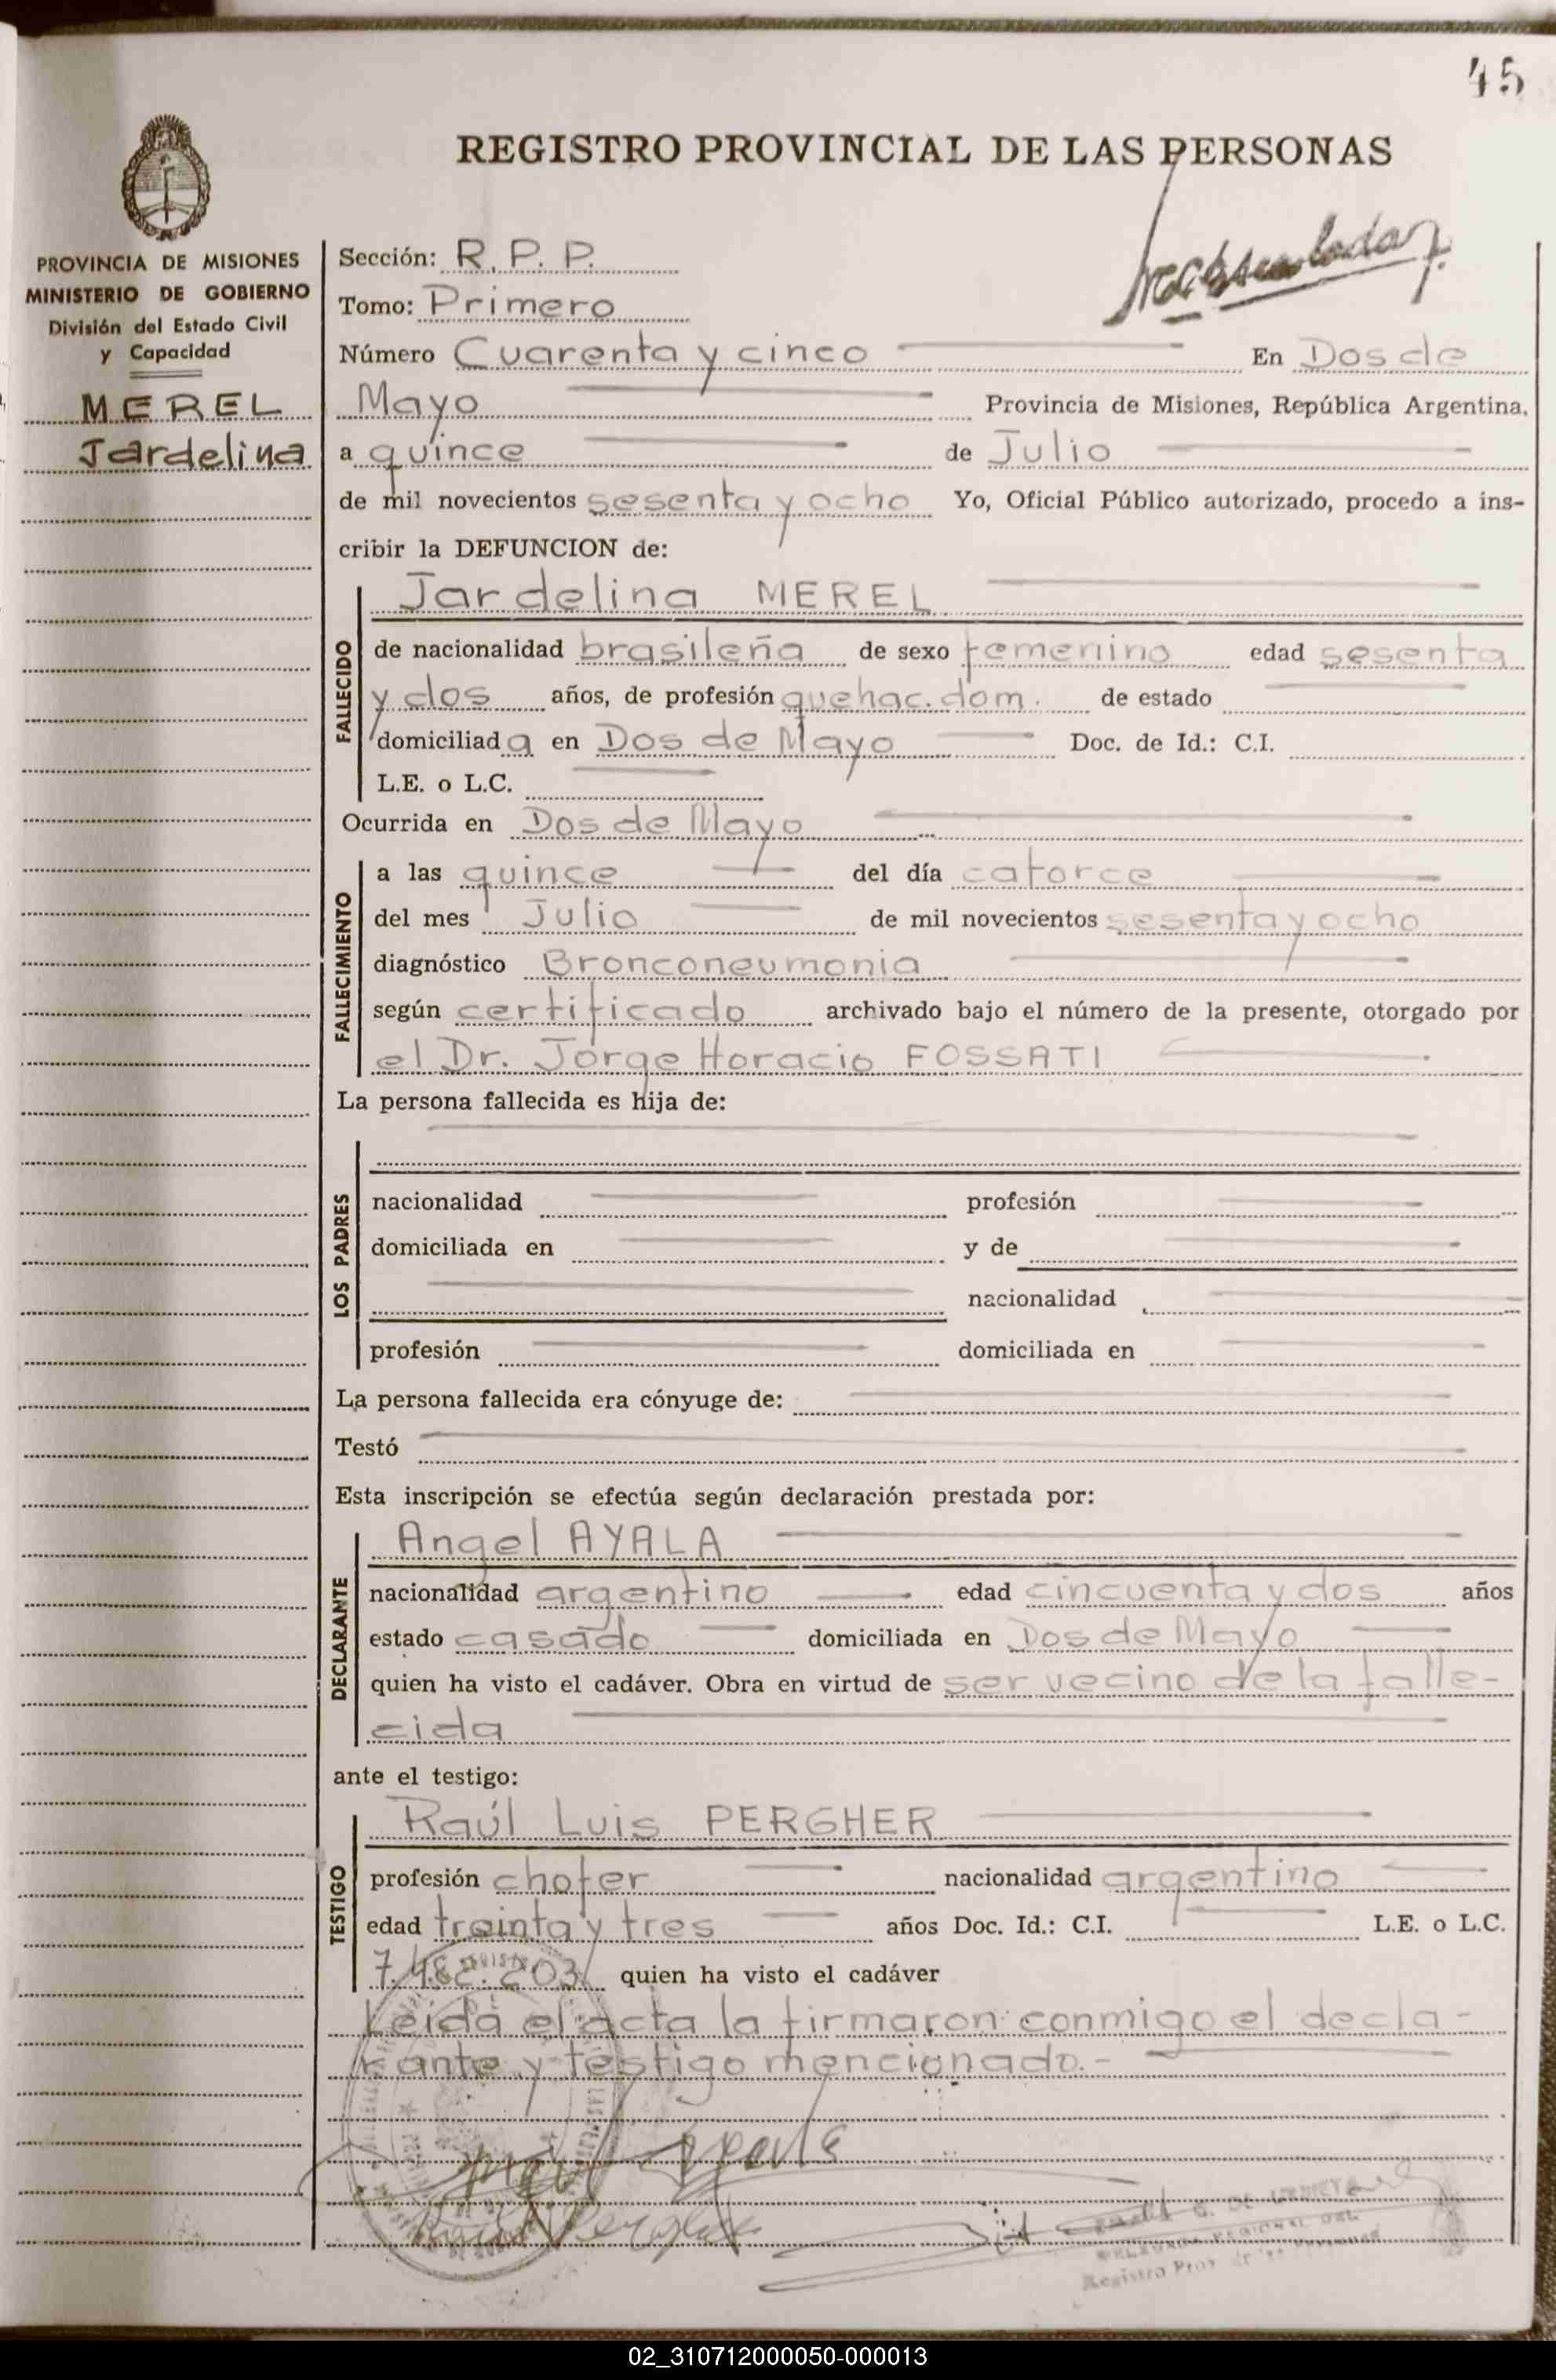 45
REGISTRO PROVINCIAL DE LAS PERSONAS
PROVINCIA DE MISIONES
MINISTERIO DE GOBIERNO
División del Estado Civil
y Capacidad
MEREL
Jardelina
Sección: R. P. P.
Tomo: Primero
Número Cuarenta y cinco En Dos de
Mayo Provincia de Misiones, República Argentina,
a quince de Julio
de mil novecientos sesenta y ocho Yo, Oficial Público autorizado, procedo a ins-
cribir la DEFUNCION de:
FALLECIDO
Jardelina MEREL
de nacionalidad brasileña de sexo femenino edad sesenta
y dos años, de profesión quehac. dom. de estado
domiciliada en Dos de Mayo Doc. de Id.: C.I.
L.E. o L.C.
Ocurrida en Dos de Mayo
FALLECIMIENTO
a las quince del día catorce
del mes Julio de mil novecientos sesenta y ocho
diagnóstico Bronconeumonia
según certificado archivado bajo el número de la presente, otorgado por
el Dr. Jorge Horacio FOSSATI
La persona fallecida es hija de:
LOS PADRES
nacionalidad profesión
domiciliada en y de
nacionalidad
profesión domiciliada en
La persona fallecida era cónyuge de:
Testó
Esta inscripción se efectúa según declaración prestada por:
DECLARANTE
Angel AYALA
nacionalidad argentino edad cincuenta y dos años
estado casado domiciliada en Dos de Mayo
quien ha visto el cadáver. Obra en virtud de ser vecino de la falle-
cida
ante el testigo:
TESTIGO
Raúl Luis PERGHER
profesión chofer nacionalidad argentino
edad treinta y tres años Doc. Id.: C.I. L.E. o L.C.
7.482.203 quien ha visto el cadáver
Leida el acta la firmaron conmigo el decla-
rante y testigo mencionado.-
Ayala
Pergher
Registro Prov. de las Personas
02_310712000050-000013